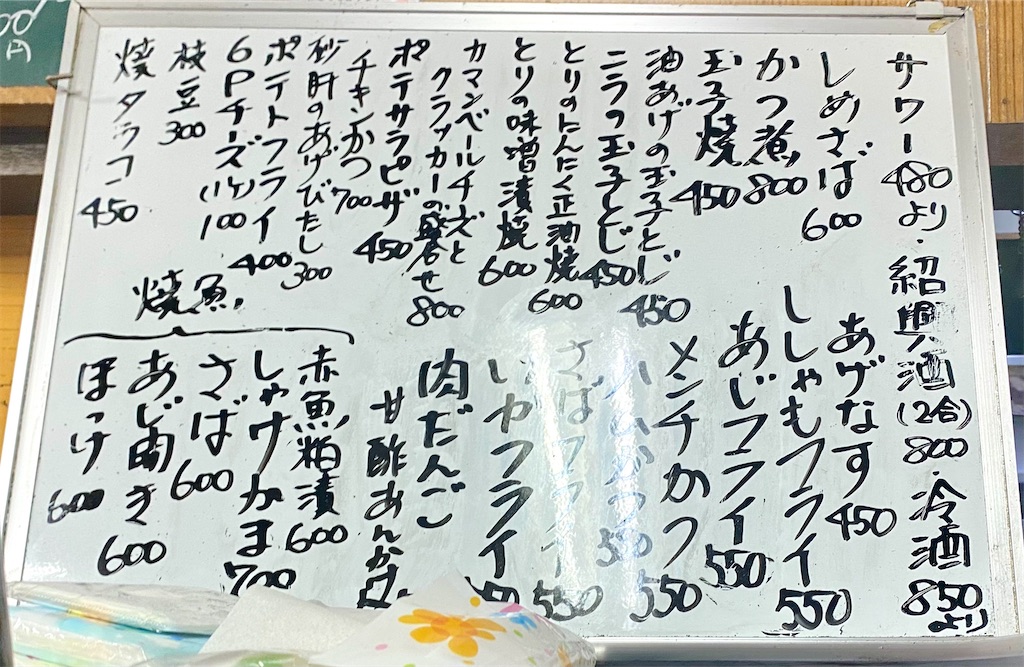 サワー480より・紹興酒(2合)800・冷酒850より
しめさば 600
かつ煮 800
玉子焼 450
油あげの玉子とじ 450
ニラの玉子とじ 450
とりのにんにく正油焼 600
とりの味噌漬焼 600
カマンベールチーズと
クラッカーの盛合せ 800
ポテサラピザ 450
チキンかつ 700
砂肝のあげびたし 300
ポテトフライ 400
6Pチーズ(1ケ) 100
枝豆 300
焼タラコ 450
あげなす 450
ししゃもフライ 550
あじフライ 550
メンチかつ 550
さばフライ 550
いかフライ
肉だんご
甘酢あんかけ
焼魚
赤魚粕漬 600
しゃけかま 700
さば 600
あじ開き 600
ほっけ 600
円